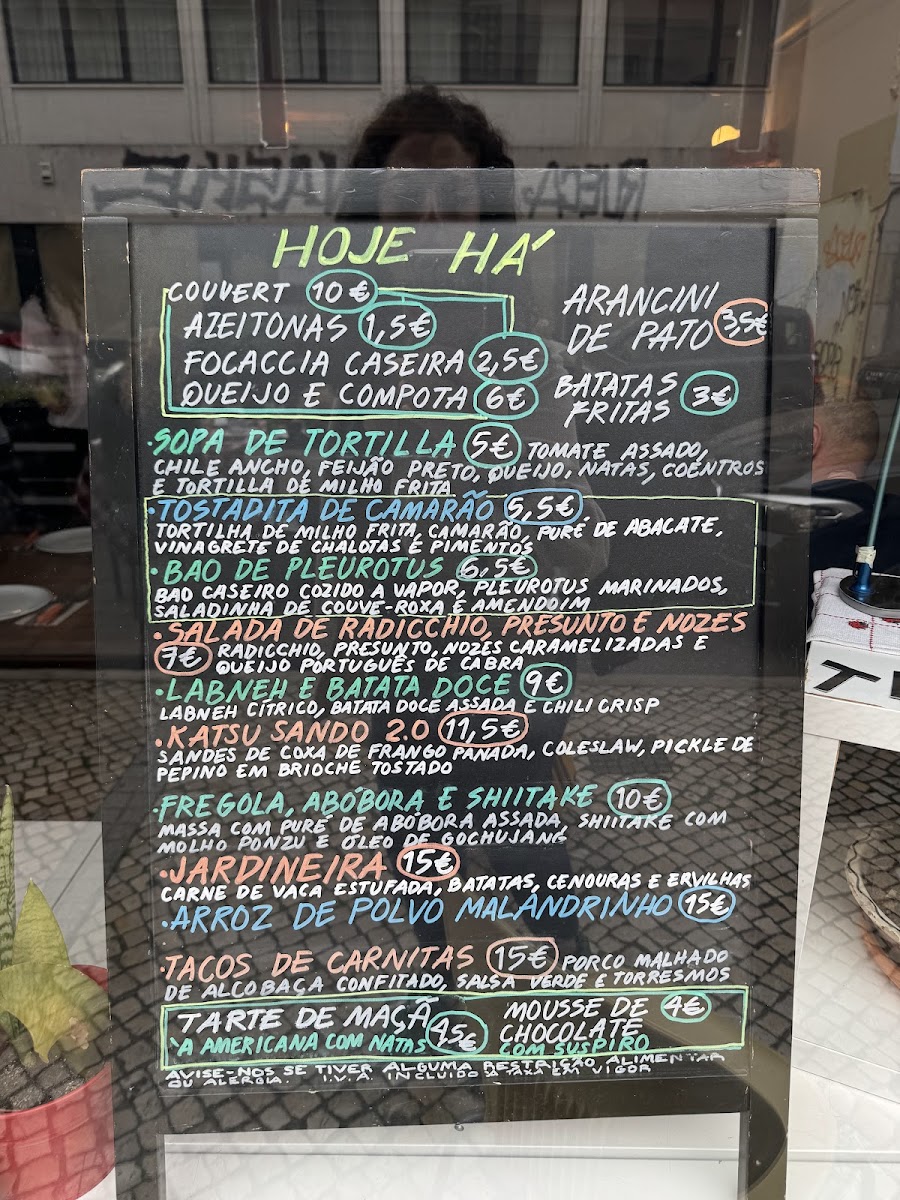 HOJE HÁ
COUVERT 10€
AZEITONAS 1,5€
FOCACCIA CASEIRA 2,5€
QUEIJO E COMPOTA 6€
ARANCINI
DE PATO 3,5€
BATATAS
FRITAS 3€
·SOPA DE TORTILLA 5€ TOMATE ASSADO,
CHILE ANCHO, FEIJÃO PRETO, QUEIJO, NATAS, COENTROS
E TORTILLA DE MILHO FRITA
·TOSTADITA DE CAMARÃO 5,5€
TORTILHA DE MILHO FRITA, CAMARÃO, PURÉ DE ABACATE,
VINAGRETE DE CHALOTAS E PIMENTOS
·BAO DE PLEUROTUS 6,5€
BAO CASEIRO COZIDO A VAPOR, PLEUROTUS MARINADOS,
SALADINHA DE COUVE-ROXA E AMENDOIM
·SALADA DE RADICCHIO, PRESUNTO E NOZES
7€ RADICCHIO, PRESUNTO, NOZES CARAMELIZADAS E
QUEIJO PORTUGUÊS DE CABRA
·LABNEH E BATATA DOCE 9€
LABNEH CÍTRICO, BATATA DOCE ASSADA E CHILI CRISP
·KATSU SANDO 2.0 11,5€
SANDES DE COXA DE FRANGO PANADA, COLESLAW, PICKLE DE
PEPINO EM BRIOCHE TOSTADO
·FREGOLA, ABÓBORA E SHIITAKE 10€
MASSA COM PURÉ DE ABÓBORA ASSADA, SHIITAKE COM
MOLHO PONZU E ÓLEO DE GOCHUJANG
·JARDINEIRA 15€
CARNE DE VACA ESTUFADA, BATATAS, CENOURAS E ERVILHAS
·ARROZ DE POLVO MALANDRINHO 15€
·TACOS DE CARNITAS 15€ PORCO MALHADO
DE ALCOBAÇA CONFITADO, SALSA VERDE E TORRESMOS
TARTE DE MAÇÃ
À AMERICANA COM NATAS 4,5€
MOUSSE DE 4€
CHOCOLATE
COM SUSPIRO
AVISE-NOS SE TIVER ALGUMA RESTRIÇÃO ALIMENTAR
OU ALERGIA. I.V.A. INCLUIDO À TAXA EM VIGOR